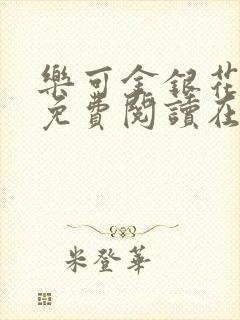 樂可金銀花
免費閱讀在
米登華